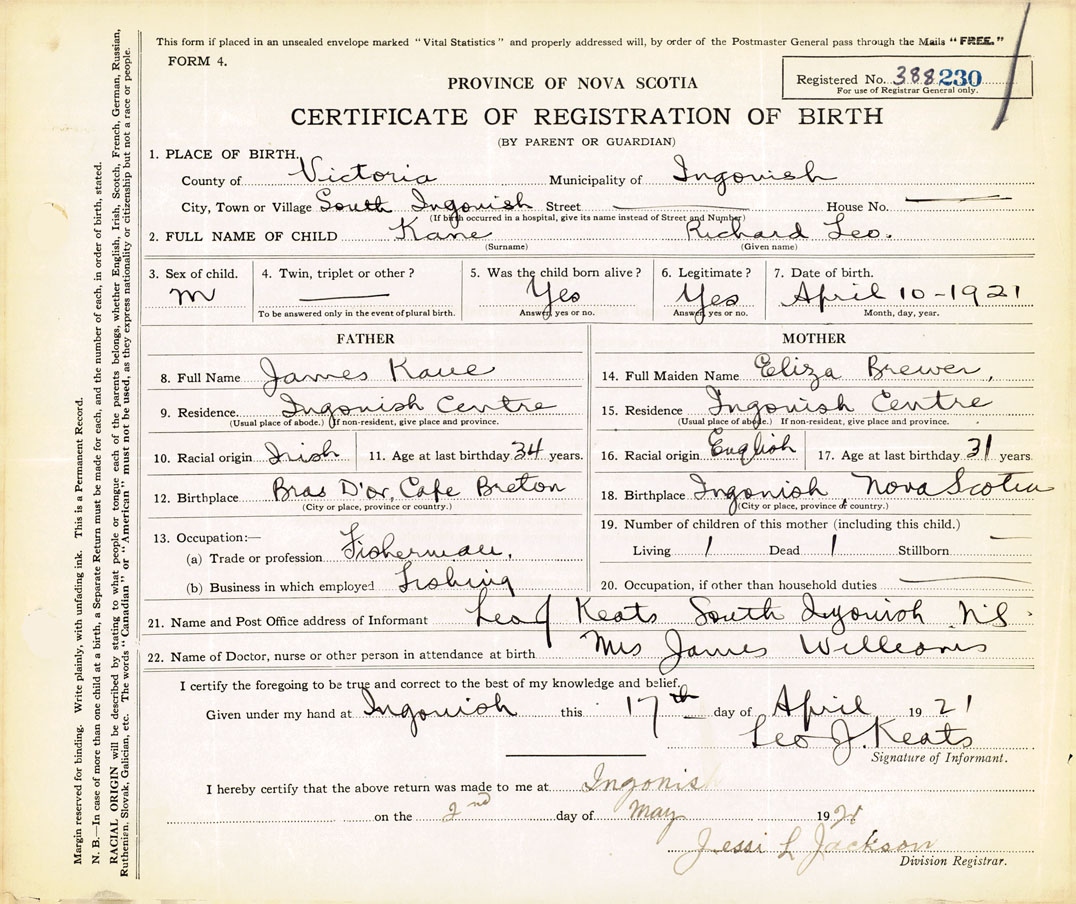 This form if placed in an unsealed envelope marked "Vital Statistics" and properly addressed will, by order of the Postmaster General pass through the Mails "FREE."
FORM 4.
Registered No. 388230
For use of Registrar General only.
PROVINCE OF NOVA SCOTIA
CERTIFICATE OF REGISTRATION OF BIRTH
(BY PARENT OR GUARDIAN)
1. PLACE OF BIRTH.
County of Victoria Municipality of Ingonish
City, Town or Village South Ingonish Street House No.
(If birth occurred in a hospital, give its name instead of Street and Number)
2. FULL NAME OF CHILD Kane Richard Leo.
(Surname) (Given name)
3. Sex of child. 4. Twin, triplet or other? 5. Was the child born alive? 6. Legitimate? 7. Date of birth.
M Yes Yes April 10-1921
To be answered only in the event of plural birth. Answer, yes or no. Answer, yes or no. Month, day, year.
FATHER
8. Full Name James Kane
9. Residence. Ingonish Centre
(Usual place of abode.) If non-resident, give place and province.
10. Racial origin Irish 11. Age at last birthday 34 years.
12. Birthplace Bras D'or, Cape Breton
(City or place, province or country.)
13. Occupation:—
(a) Trade or profession Fisherman,
(b) Business in which employed Fishing
MOTHER
14. Full Maiden Name Eliza Brewer,
15. Residence Ingonish Centre
(Usual place of abode.) If non-resident, give place and province.
16. Racial origin English 17. Age at last birthday 31 years
18. Birthplace Ingonish, Nova Scotia
(City or place, province or country.)
19. Number of children of this mother (including this child.)
Living 1 Dead 1 Stillborn —
20. Occupation, if other than household duties
21. Name and Post Office address of Informant Leo J Keats South Ingonish N.S.
22. Name of Doctor, nurse or other person in attendance at birth Mrs James Williams
I certify the foregoing to be true and correct to the best of my knowledge and belief.
Given under my hand at Ingonish this 17th day of April 1921
Leo J. Keats
Signature of Informant.
I hereby certify that the above return was made to me at Ingonish
on the 2nd day of May 1921
Jessi L Jackson
Division Registrar.
Margin reserved for binding. Write plainly, with unfading ink. This is a Permanent Record.
N. B.—In case of more than one child at a birth, a Separate Return must be made for each, and the number of each, in order of birth, stated.
RACIAL ORIGIN will be described by stating to what people or tongue each of the parents belongs, whether English, Irish, Scotch, French, German, Russian,
Ruthenian, Slovak, Galician, etc. The words "Canadian" or "American" must not be used, as they express nationality or citizenship but not a race or people.